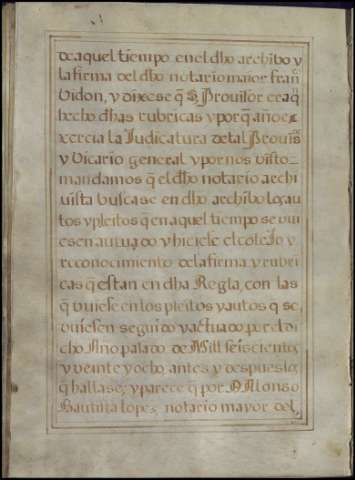 de aquel tiempo en el dho archibo y
la firma del dho notario maior fran
vidon, y dixese q̃ S. Provisor era q̃
hecho dhas rubricas y por q̃ año e
xercia la Judicatura de tal Provis
y vicario general y por nos visto
mandamos q̃ el dho notario archi
vista buscase en dho archibo los au
tos y pleitos q̃ en aquel tiempo se vui
esen autuado y hiciese el cotejo y
reconocimiento de la firma y rubri
cas q̃ estan en dha Regla, con las
q̃ vuiese en los pleitos y autos q se
vuiesen seguido y actuado por el di
cho Ano palado de Mill seiscientos
y veinte y ocho, antes y despues los
q̃ hallase, y parece q̃ por D. Alonso
Bautista lopes, notario mayor del